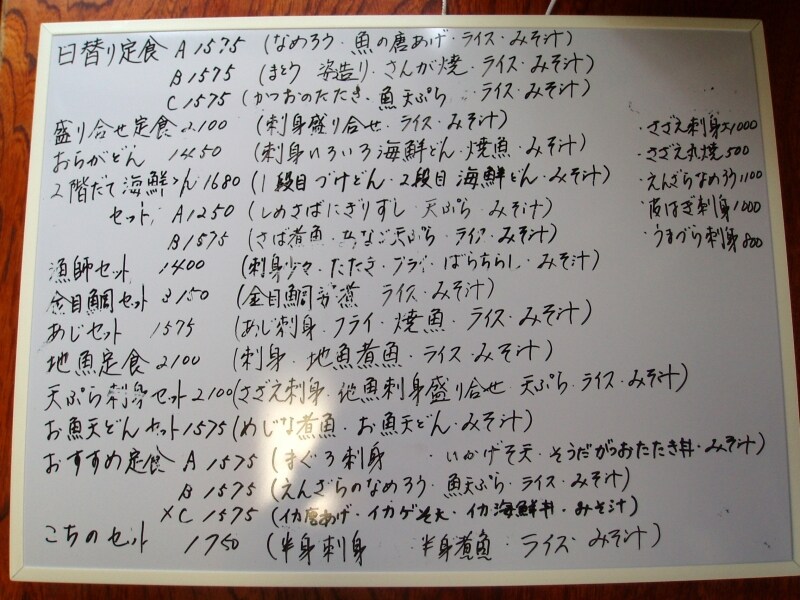 日替り定食 A 1575 (なめろう・魚の唐あげ・ライス・みそ汁)
B 1575 (まとう 姿造り・さんが焼・ライス・みそ汁)
C 1575 (かつおのたたき・魚天ぷら・ライス・みそ汁)
盛り合せ定食 2100 (刺身盛り合せ・ライス・みそ汁)
おらがどん 1450 (刺身いろいろ海鮮どん・焼魚・みそ汁)
2階だて海鮮どん 1680 (1段目づけどん・2段目海鮮どん・みそ汁)
セット A 1250 (しめさばにぎりずし・天ぷら・みそ汁)
B 1575 (さば煮魚・あなご天ぷら・ライス・みそ汁)
漁師セット 1400 (刺身少々・たたき・フライ・ばらちらし・みそ汁)
金目鯛セット 3150 (金目鯛 煮 ライス・みそ汁)
あじセット 1575 (あじ刺身・フライ・焼魚・ライス・みそ汁)
地魚定食 2100 (刺身・地魚煮魚・ライス・みそ汁)
天ぷら刺身セット 2100 (さざえ刺身・地魚刺身盛り合せ・天ぷら・ライス・みそ汁)
お魚天どんセット 1575 (めじな煮魚・お魚天どん・みそ汁)
おすすめ定食 A 1575 (まぐろ刺身・いかげそ天・そうだがつおたたき丼・みそ汁)
B 1575 (えんざらのなめろう・魚天ぷら・ライス・みそ汁)
×C 1575 (イカ唐あげ・イカゲソ天・イカ海鮮丼・みそ汁)
こちのセット 1750 (半身刺身・半身煮魚・ライス・みそ汁)
・さざえ刺身 1000
・さざえ丸焼 500
・えんざらなめろう 1100
・皮はぎ刺身 1000
・うまづら刺身 800